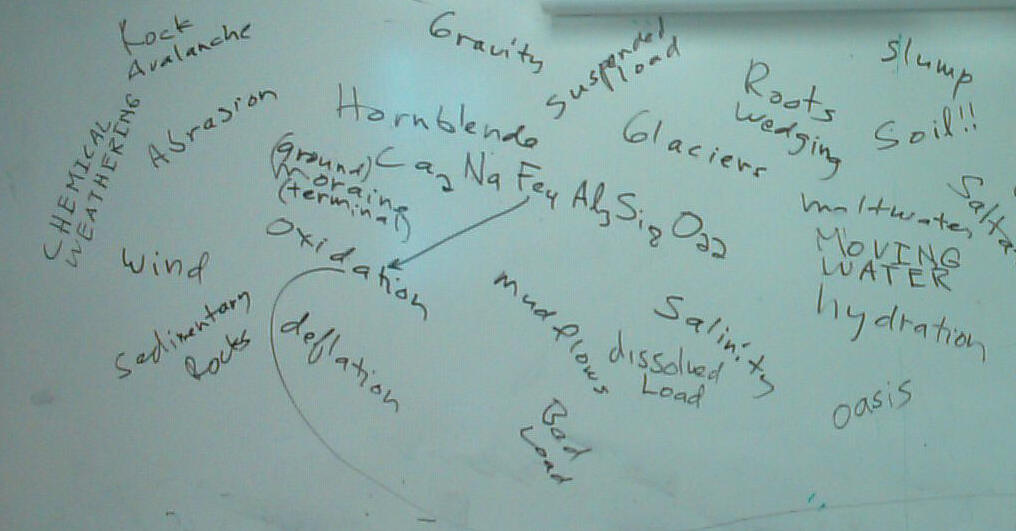 Rock
Avalanche
Gravity
suspended
load
Slump
CHEMICAL
WEATHERING
Abrasion
Hornblende
Roots
Wedging
Soil!!
Glaciers
(ground)
moraine
(terminal)
Ca2 Na Fe4 Al3 Si8 O22
Salta
meltwater
MOVING
WATER
hydration
Oxidation
Wind
Sedimentary
Rocks
deflation
mudflows
Salinity
dissolved
Load
Bed
Load
oasis